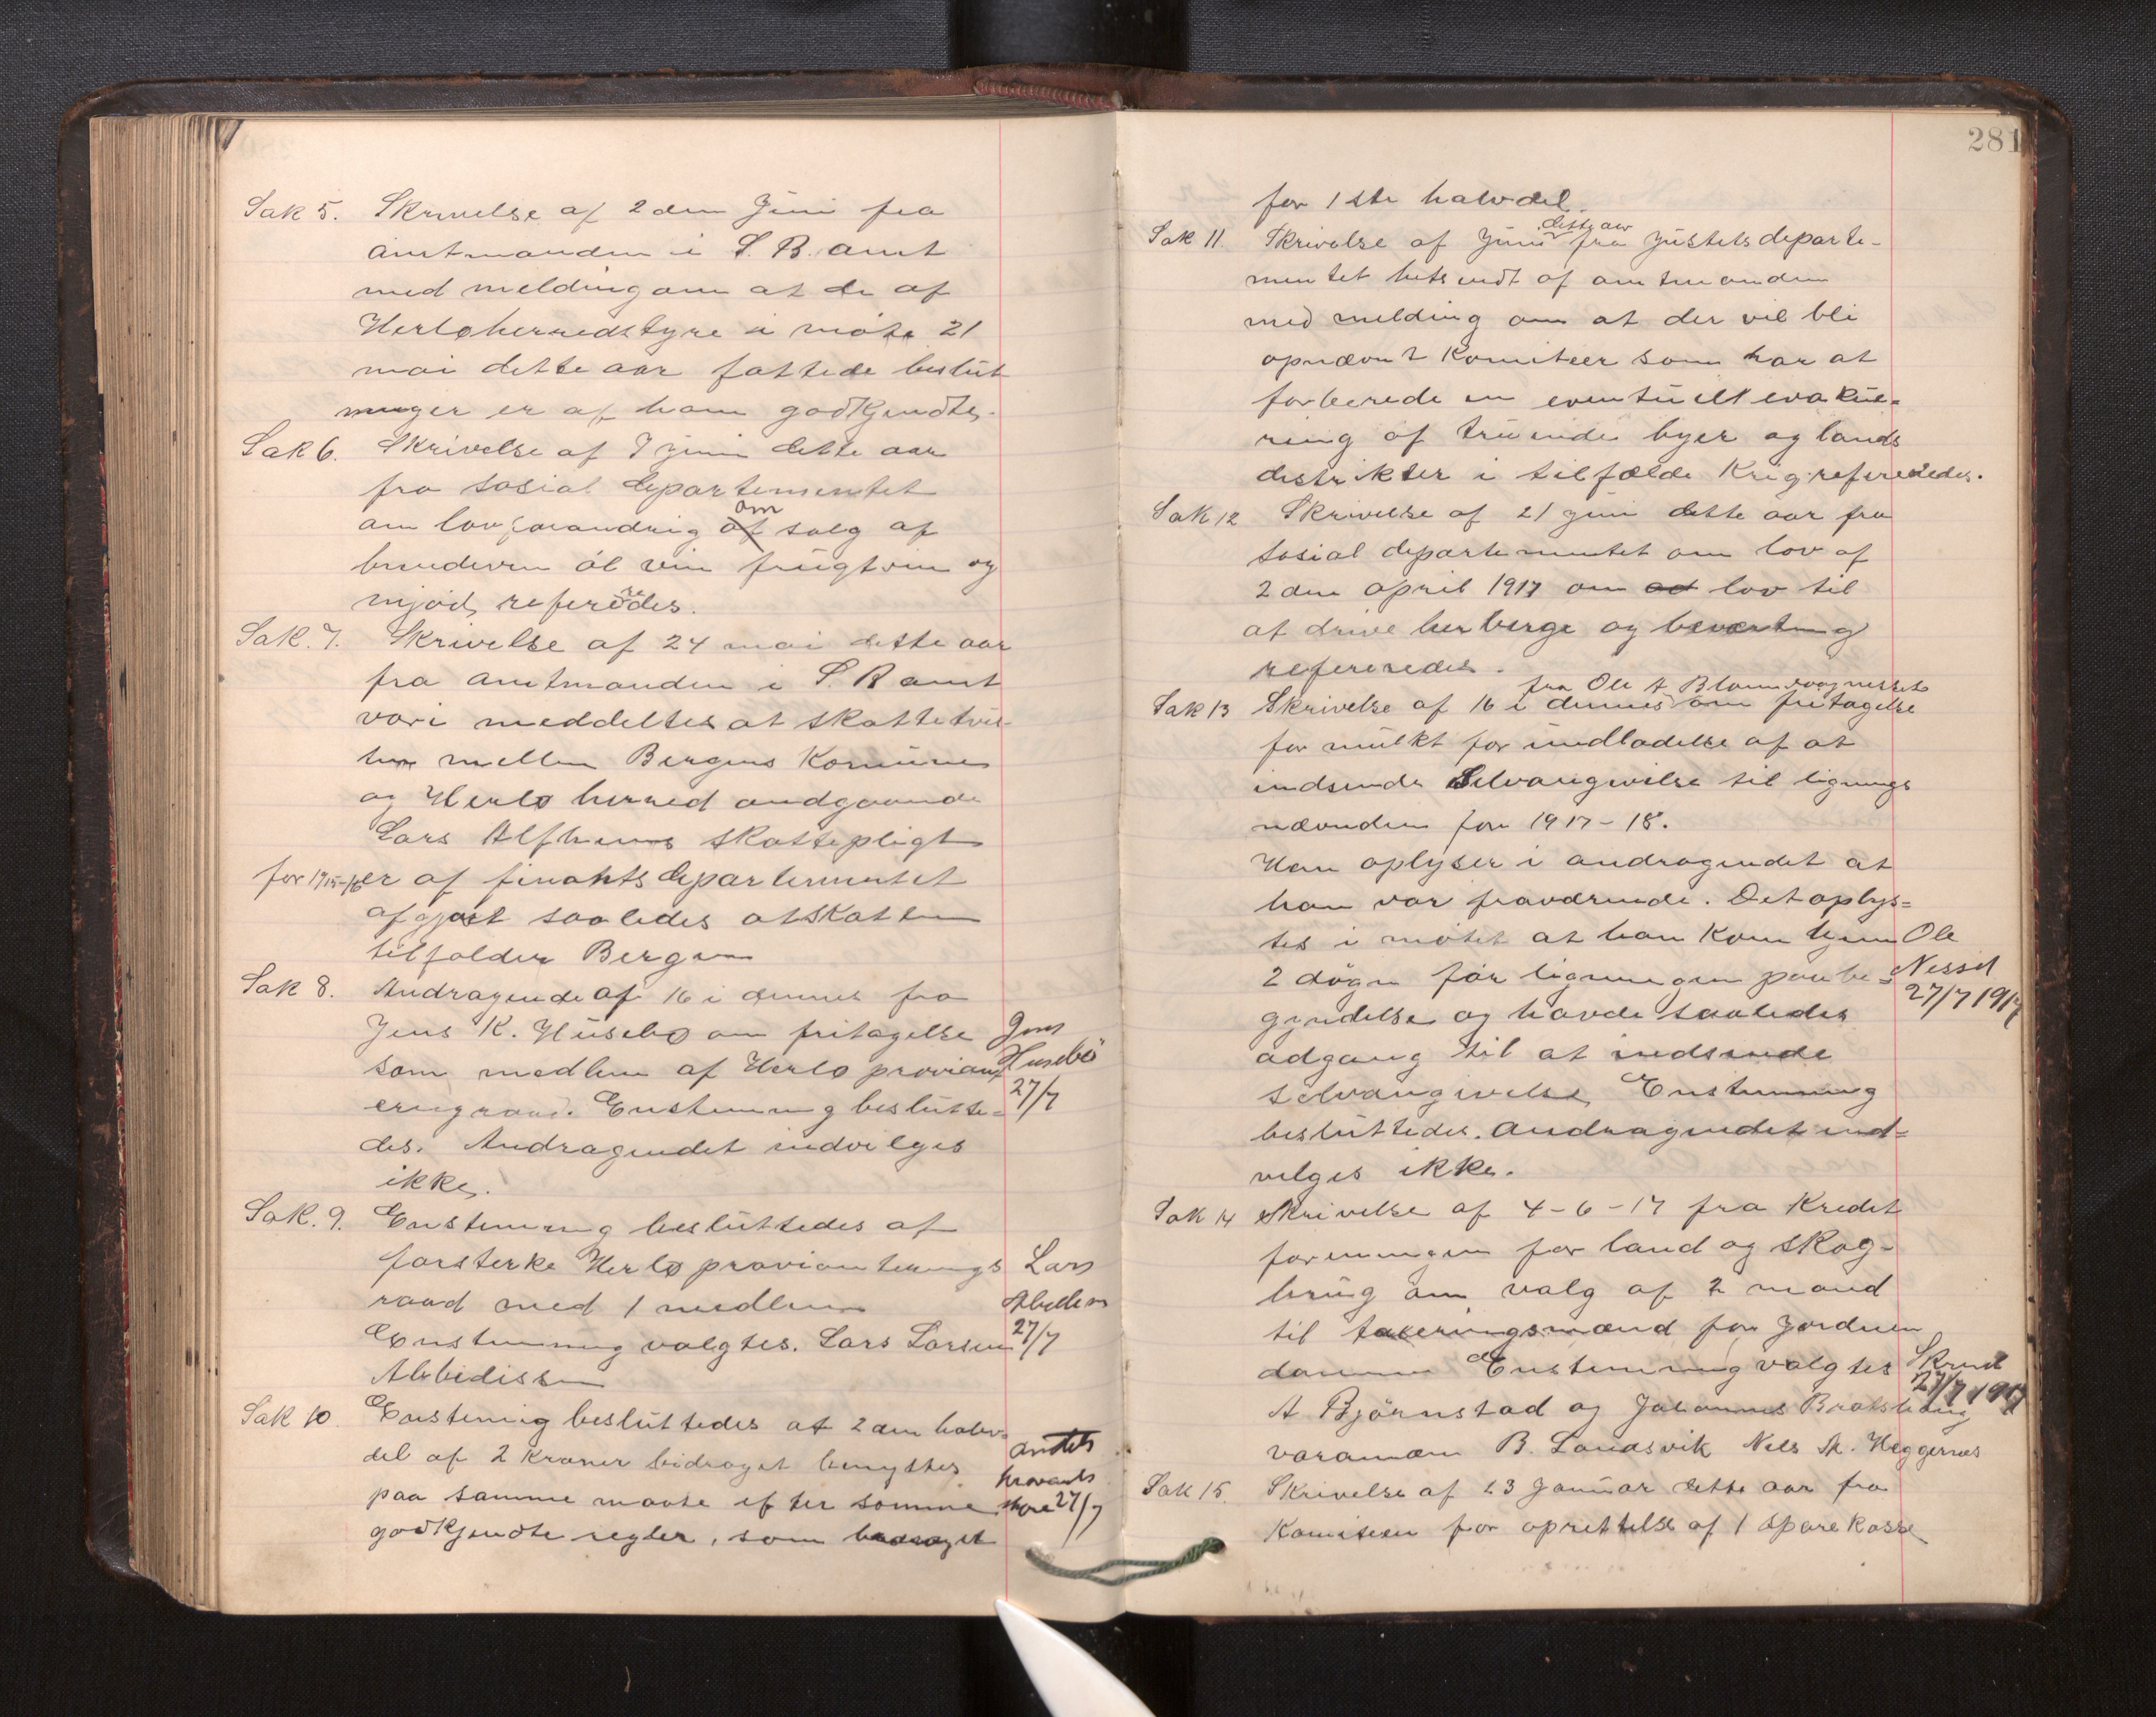 Sak 5. Skrivelse af 2 den Juni fra
amtmanden i S. B. amt
med melding om at de af
Herlø herredstyre i møte 21
mai dette aar fattede beslut
ninger er af ham godkjendtes.
Sak 6. Skrivelse af 7 juni dette aar
fra sosial departementet
om lovforandrig af om salg af
brendevin øl vin frugtvin og
mjød, refereredes.
Sak. 7. Skrivelse af 24 mai dette aar
fra amtmanden i S. B amt
vori meddeltes at skattetvis-
ten mellem Bergens Komune
og Herlø herred andgaaende
Lars Alfheims skattepligt
for 1915-16 er af finants departementet
afgjort saaledes at skatten
tilfalder Bergen
Sak 8. Andragende af 16 i dennes fra
Jens K. Husebø om fritagelse Jens
som medlem af Herlø proviant Husebø
eringraad. Enstemmig beslutte= 27/7
des. Andragendet indvilges
ikke.
Sak. 9. Enstemmig besluttedes at
forsterke Herlø provianterings Lars
raad med 1 medlem
Enstemmig valgtes. Lars Larsen 27/7
Sak 10. Enstemig besluttedes at 2 den halv=
del af 2 Kroner bidraget benyttes
paa samme maate efter samme 27/7
godkjendte regler, som bidraget
281
for 1ste halvdel.
dette aar
Sak 11. Skrivelse af Juni fra Justits departe-
mentet hitsendt af amtmanden
med melding om at der vil bli
opnævnt Komiteer som har at
forberede en eventuelt evakue=
ring af truende byer og lands
distrikter i tilfælde Krig refereredes.
Sak 12 Skrivelse af 21 juni dette aar fra
sosial departementet om lov af
2 den april 1917 om ad lov til
at drive herberge og bevertning
refereredes.
fra Ole A Blomvaagnesset
Sak 13 Skrivelse af 16 i dennes om fritagelse
for mulkt for undladelse af at
indsende Selvangivelse til lignings
nævnden for 1917-18.
Han oplyser i andragendet at
han var fraværende. Det oplys=
tes i møtet at han kom hjem Ole
2 døgn før ligningen paabe= Nesset
gyndelse og havde saaledes 27/7 1917
adgang til at indsende
selvangivelse. Enstemmig
besluttedes. Andragendet ind=
velges ikke.
Sak 14 Skrivelse af 4-6-17 fra Kredit
foreningen for land og skog-
brug om valg af 2 mænd
til takseringsmænd for Jordeien
domme Enstemmig valgtes Skrevet
27/7 1917
A Bjørnstad og Johannes Bratshaug
varamæn B. Landsvik Nels A. Heggernæs
Sak 15. Skrivelse af 23 Januar dette aar fra
Komiteen for oprettelse af 1 Sparekasse